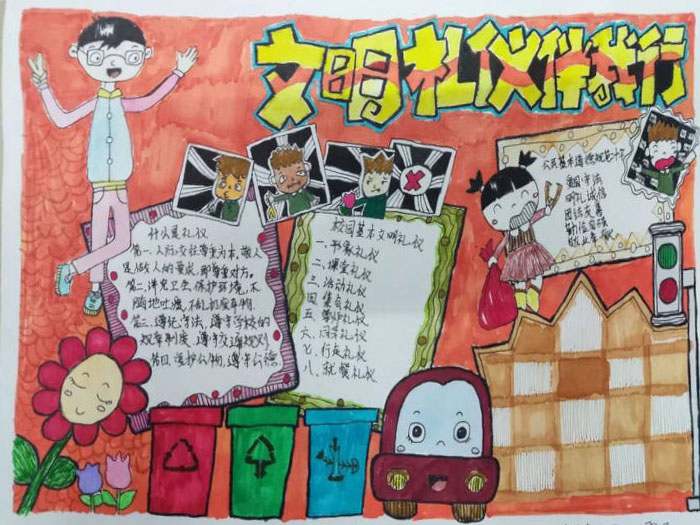 文明礼仪伴我行
什么是礼仪
第一、人际交往尊重为本,敬人
第二、讲究卫生保护环境,不
随地吐痰,不乱扔废弃物.
第三、遵纪守法,遵守学校的
规章制度,遵守交通规则
节日,爱护公物,遵守公德
校园基本文明礼仪
一、形象礼仪
二、课堂礼仪
三、活动礼仪
四 集会礼仪
五
六、同学礼仪
七、行走礼仪
八、就餐礼仪
公民基本道德规范
爱国守法
明礼诚信
团结友善
勤俭自强
敬业奉献